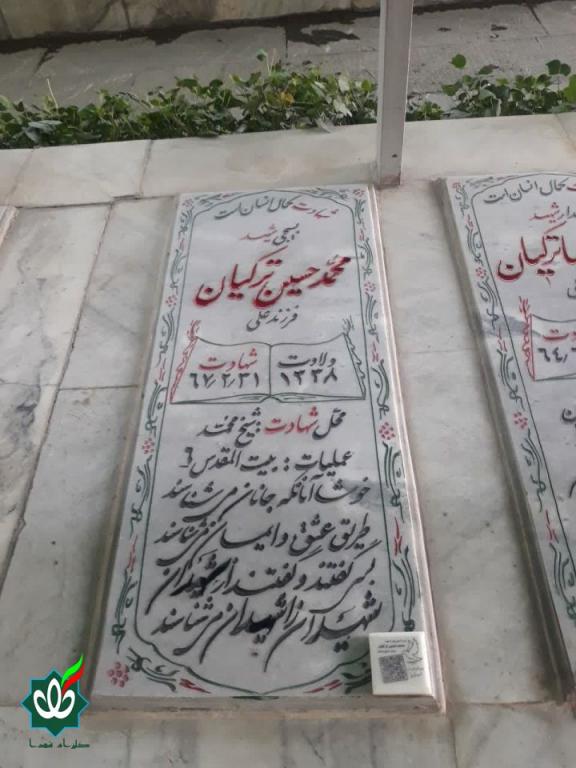 شهادت کمال انسان است
بسیجی شهید
محمد حسین ترکیان
فرزند علی
ولادت
۱۳۳۸
شهادت
۶۷/۲/۳۱
محل شهادت: شیخ محمد
عملیات: بیت المقدس ۶
خوشا آنانکه جانان می شناسند
طریق عشق و ایمان می شناسند
بسی گفتند و گفتند از شهیدان
شهیدان را شهیدان می شناسند
کمال انسان است
شهید
ترکیان